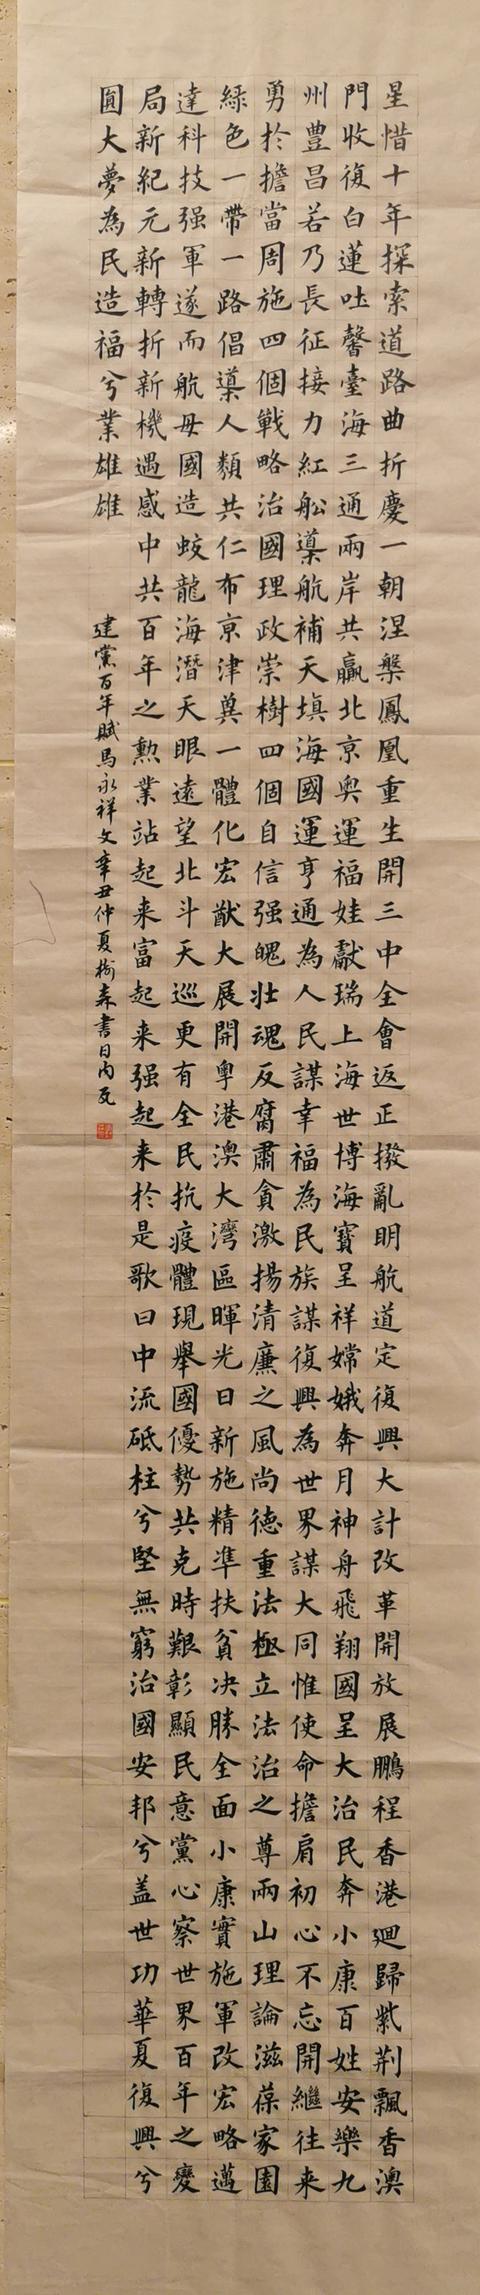 星惜十年探索道路曲折慶一朝涅槃鳳凰重生開三中全會返正撥亂明航道定復興大計改革開放展鵬程香港廻歸紫荆飄香澳
門收復白蓮吐馨臺海三通兩岸共贏北京奥運福娃獻瑞上海世博海寶呈祥嫦娥奔月神舟飛翔國呈大治民奔小康百姓安樂九
州豊昌若乃長征接力紅船導航補天填海國運亨通為人民謀幸福為民族謀復興為世界謀大同惟使命擔肩初心不忘開繼往来
勇於擔當周施四個戰略治國理政崇樹四個自信强魄壯魂反腐肅貪激揚清廉之風尚德重法極立法治之尊兩山理論滋葆家園
緑色一帶一路倡導人類共仁布京津冀一體化宏猷大展開粤港澳大灣區暉光日新施精準扶貧决勝全面小康實施軍改宏略邁
達科技强軍遂而航母國造蛟龍海潛天眼遠望北斗天巡更有全民抗疫體現舉國優勢共克時艱彰顯民意黨心察世界百年之變
局新紀元新轉折新機遇感中共百年之勲業站起来富起来强起来於是歌曰中流砥柱兮堅無窮治國安邦兮盖世功華夏復興兮
圓大夢為民造福兮業雄雄
建黨百年賦馬永祥文辛丑仲夏樹森書日内瓦